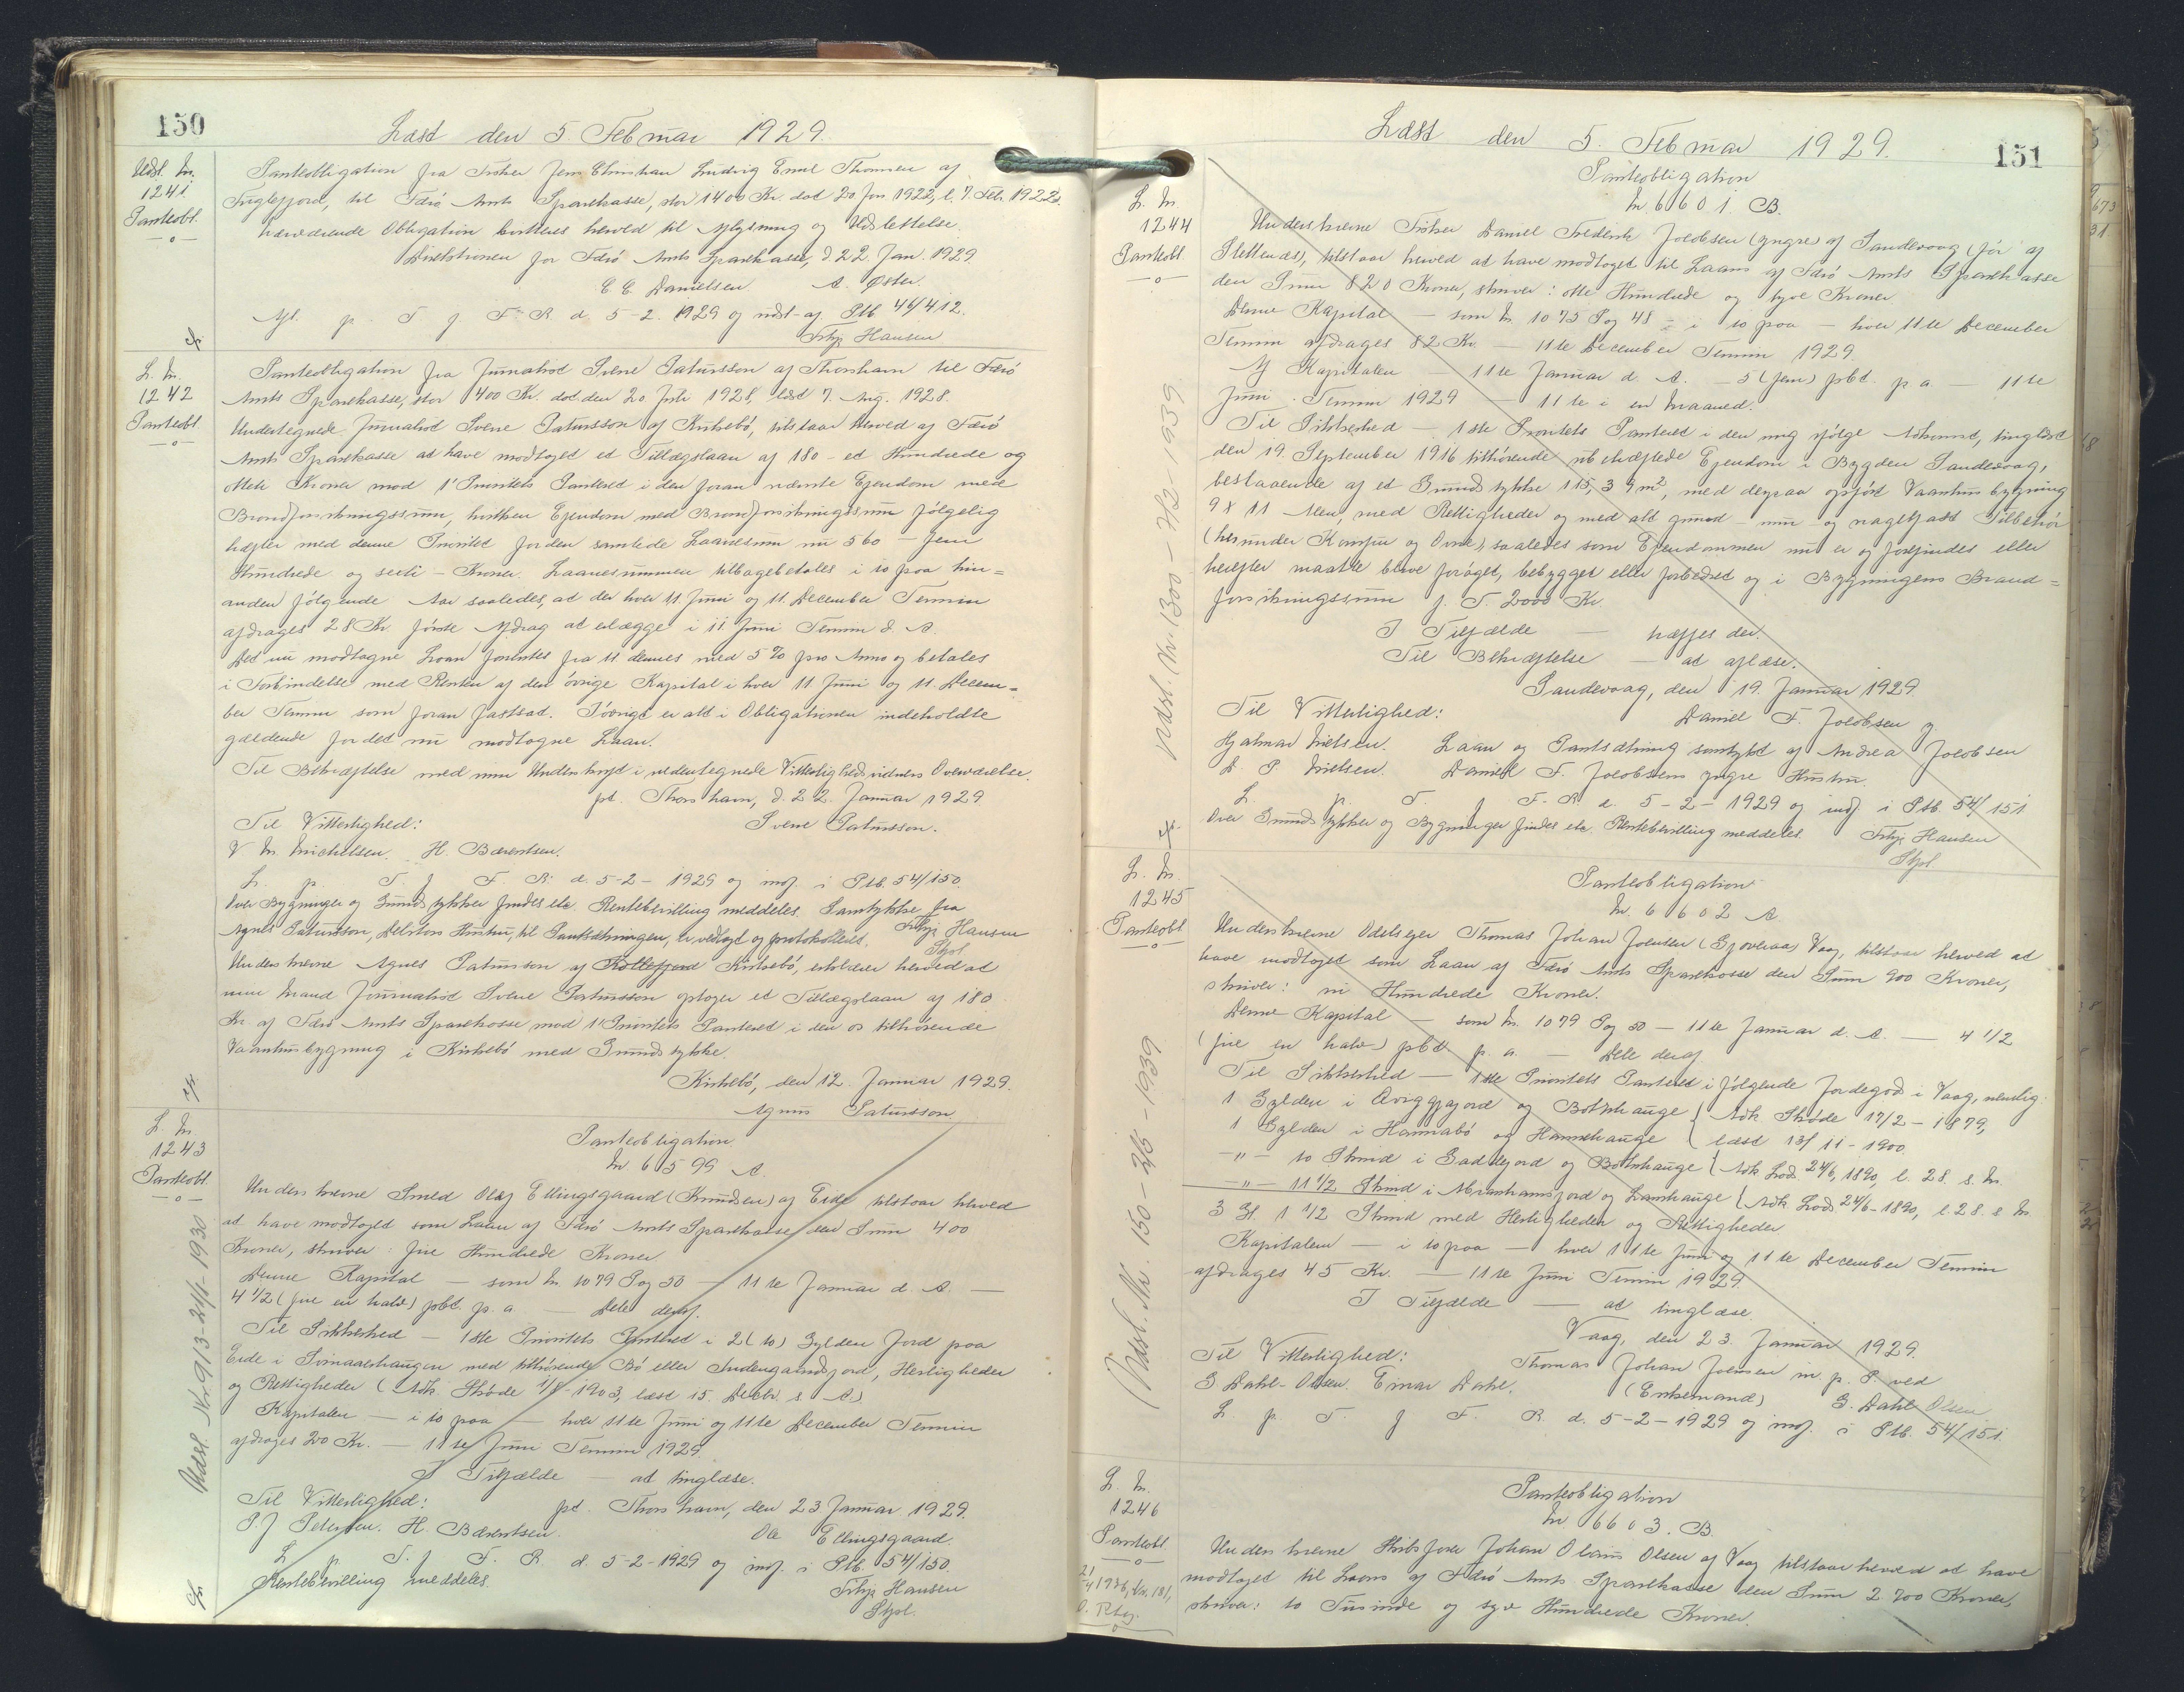 150
Læst den 5. Februar 1929.
Udsl. Nr.
1241.
Panteobl.
Panteobligation fra Fisker Jens Christian Ludvig Emil Thomsen af
Fuglefjord, til Færö Amts Sparekasse, stor 1400 Kr. dat. 20 Jan 1922, l. 7. Feb. 1922.
Nærværende Obligation kvitteres herved til Aflysning og Udslettelse.
Direktionen for Færö Amts Sparekasse, d. 22. Jan. 1929.
C. C. Danielsen. A. Øster.
Afl. p. T f F. R. d. 5-2. 1929 og udsl. af Ptb 44/412.
Filip Hansen
L. Nr.
1242
Panteobl.
Panteobligation fra Journalist Sverre Patursson af Thorshavn til Færö
Amts Sparekasse, stor 400 Kr. dat. den 20 Juli 1928, læst 7. Aug. 1928.
Undertegnede Journalist Sverre Patursson af Kirkebö, tilstaar herved af Færö
Amts Sparekasse at have modtaget et Tillægslaan af 180 - et Hundrede og
otteti Kroner mod 1' Prioritets Panteret i den foran nævnte Ejendom med
Brandforsikringssum, hvilken Ejendom med Brandforsikringssum fölgelig
hæfter med denne Prioritet for den samlede Laanesum nu 560 - fem
Hundrede og seksti - Kroner. Laanesummen tilbagebetales i 10 paa hin=
anden fölgende Aar saaledes, at der hver 11. Juni og 11. December Termin
afdrages 28 Kr. förste Afdrag at erlægge i 11 Juni Termin d. A.
Det nu modtagne Laan forrentes fra 11 dennes med 5 % pro Anno og betales
i Forbindelse med Renten af den övrige Kapital i hver 11. Juni og 11. Decem=
ber Termin som foran fastsat. Iövrigt er alt i Obligationen indeholdte
gældende for det nu modtagne Laan.
Til Bekræftelse med min Underskrift i nedentegnede Vitterlighedsvidners Overværelse.
pt. Thorshavn, d. 22. Januar 1929.
Til Vitterlighed: Sverre Patursson.
V. M. Michelsen. H. Bærentsen.
L. p. T. f F. R. d. 5-2- 1929 og indf. i Ptb. 54/150.
Over Bygninger og Grundstykker findes etc. Rentebevilling meddeles. Samtykke fra
Agnes Patursson, Debitors Hustru, til Pantsætningen, er vedlagt og protokolleret. Filip Hansen
Underskrevne Agnes Patursson af Kollefjord Kirkebö, erklærer herved at
min Mand Journalist Sverre Patursson optager et Tillægslaan af 180
Kr. af Færö Amts Sparekasse mod 1' Prioritets Panteret i den os tilhörende
Vaaningsbygning i Kirkebö med Grundstykke.
Kirkebö, den 12. Januar 1929.
Agnes Patursson
L. Nr.
1243
Panteobl.
Panteobligation
Nr. 6599 A.
Underskrevne Smed Olaf Ellingsgaard (Knudsen) af Eide tilstaar herved
at have modtaget som Laan af Færö Amts Sparekasse den Sum 400
Kroner, skriver: fire Hundrede Kroner
Denne Kapital — som Nr. 1079 Pag 50 — 11te Januar d. A. —
4 1/2 (fire en halv) pCt. p. a. — Dele deraf.
Til Sikkerhed — 1ste Prioritets Panteret i 2 (to) Gylden Jord paa
Eide i med tilhörende Bö eller Indengaardsjord, Herligheder
og Rettigheder (Adk. Sköde 1/8-1903, læst 15. Decbr. s. A.)
Kapitalen — i 10 paa — hver 11te Juni og 11te December Termin
afdrages 20 Kr. — 11te Juni Termin 1929.
I Tilfælde — at tinglæse.
Til Vitterlighed: pt. Thorshavn, den 23 Januar 1929.
P. J Petersen. H. Bærentsen. Ole Ellingsgaard.
L p. T. f. F. R. d. 5-2-1929 og indf. i Ptb. 54/150.
Rentebevilling meddeles. Filip Hansen
Udsl. Nr. 913 - 24/1 - 1930
151
Læst den 5. Februar 1929.
L. Nr.
1244
Panteobl.
Panteobligation
Nr. 6601. B.
Underskrevne Fisker Daniel Frederik Jacobsen (yngre) af Sandevaag (för af
Slettenæs), tilstaar herved at have modtaget til Laans af Færö Amts Sparekasse
den Sum 820 Kroner, skriver: otte Hundrede og tyve Kroner.
Denne Kapital — som Nr. 1075 Pag 48 - i 10 paa — hver 11te December
Termin afdrages 82 Kr. — 11te December Termin 1929.
Af Kapitalen — 11te Januar d. A. — 5 (fem) pCt. p a. — 11te
Juni Termin 1929 — 11te i en Maaned.
Til Sikkerhed — 1ste Prioritets Panteret i den mig ifölge Adkomst, tinglæst
den 19. September 1916 tilhörende ubehæftede Ejendom i Bygden Sandevaag,
bestaaende af et Grundstykke 115,39 m², med derpaa opfört Vaaningsbygning
9 x 11 Alen, med Rettigheder og med alt grund- mur- og nagelfast Tilbehör
(herunder Komfur og Ovne), saaledes som Ejendommen nu er og forefindes eller
herefter maatte blive foröget, bebygget eller forbedret og i Bygningens Brand=
forsikringssum f. T. 2000 Kr.
I Tilfælde — hæftes der.
Til Bekræftelse — at aflæse.
Sandevaag, den 19. Januar 1929.
Til Vitterlighed: Daniel F. Jacobsen
Hjalmar Nielsen. Laan og Pantsætning samtykt af Andrea Jacobsen
D. P. Nielsen. Daniel F. Jacobsens yngre Hustru.
L. p. T. f F. R d. 5-2-1929 og indf. i Ptb. 54/151
Over Grundstykker og Bygninger findes etc. Rentebevilling meddeles. Filip Hansen
L. Nr.
1245
Panteobl.
Panteobligation
Nr. 6602 A.
Underskrevne Odelsejer Thomas Johan Joensen (Gjoveraa) Vaag, tilstaar herved at
have modtaget som Laan af Færö Amts Sparekasse den Sum 900 Kroner,
skriver: ni Hundrede Kroner.
Denne Kapital — som Nr. 1079 Pag 50 — 11te Januar d. A. — 4 1/2
(fire en halv) pCt. p. a. — Dele deraf.
Til Sikkerhed — 1ste Prioritets Panteret i fölgende Jordegods i Vaag, nemlig:
1 Gylden i og Botnhauge { Adk. Sköde 17/2 - 1879,
1 Gylden i Hannabö og Hamrehauge { læst 13/11 - 1900.
-"- 10 Skind i og Botnhauge { Adk. 24/6, 1890, l. 28. s. M.
-"- 11 1/2 Skind i Abrahamsjord og { Adk. 24/6-1890, l. 28. s. M
3 Gl. 1 1/2 Skind med Herligheder og Rettigheder
Kapitalen — i 10 paa — hver 11te Juni og 11te December Termin
afdrages 45 Kr. — 11te Juni Termin 1929
I Tilfælde — at tinglæse.
Vaag, den 23. Januar 1929.
Til Vitterlighed: Thomas Johan Joensen m. p. P. ved
G Dahl-Olsen. Einar Dahl. (Enkemand) G. Dahl Olsen
L p. T. f F. R. d. 5-2-1929 og indf. i Ptb. 54/151.
Udsl. Nr. 1300 - 1939
Udsl. Nr. 150 - 1939
L. Nr.
1246
Panteobl.
Panteobligation
Nr. 6603. B.
Underskrevne Skibsförer Johan Olaus Olsen af Vaag tilstaar herved at have
modtaget til Laans af Færö Amts Sparekasse den Sum 2700 Kroner,
skriver: to Tusinde og syv Hundrede Kroner.